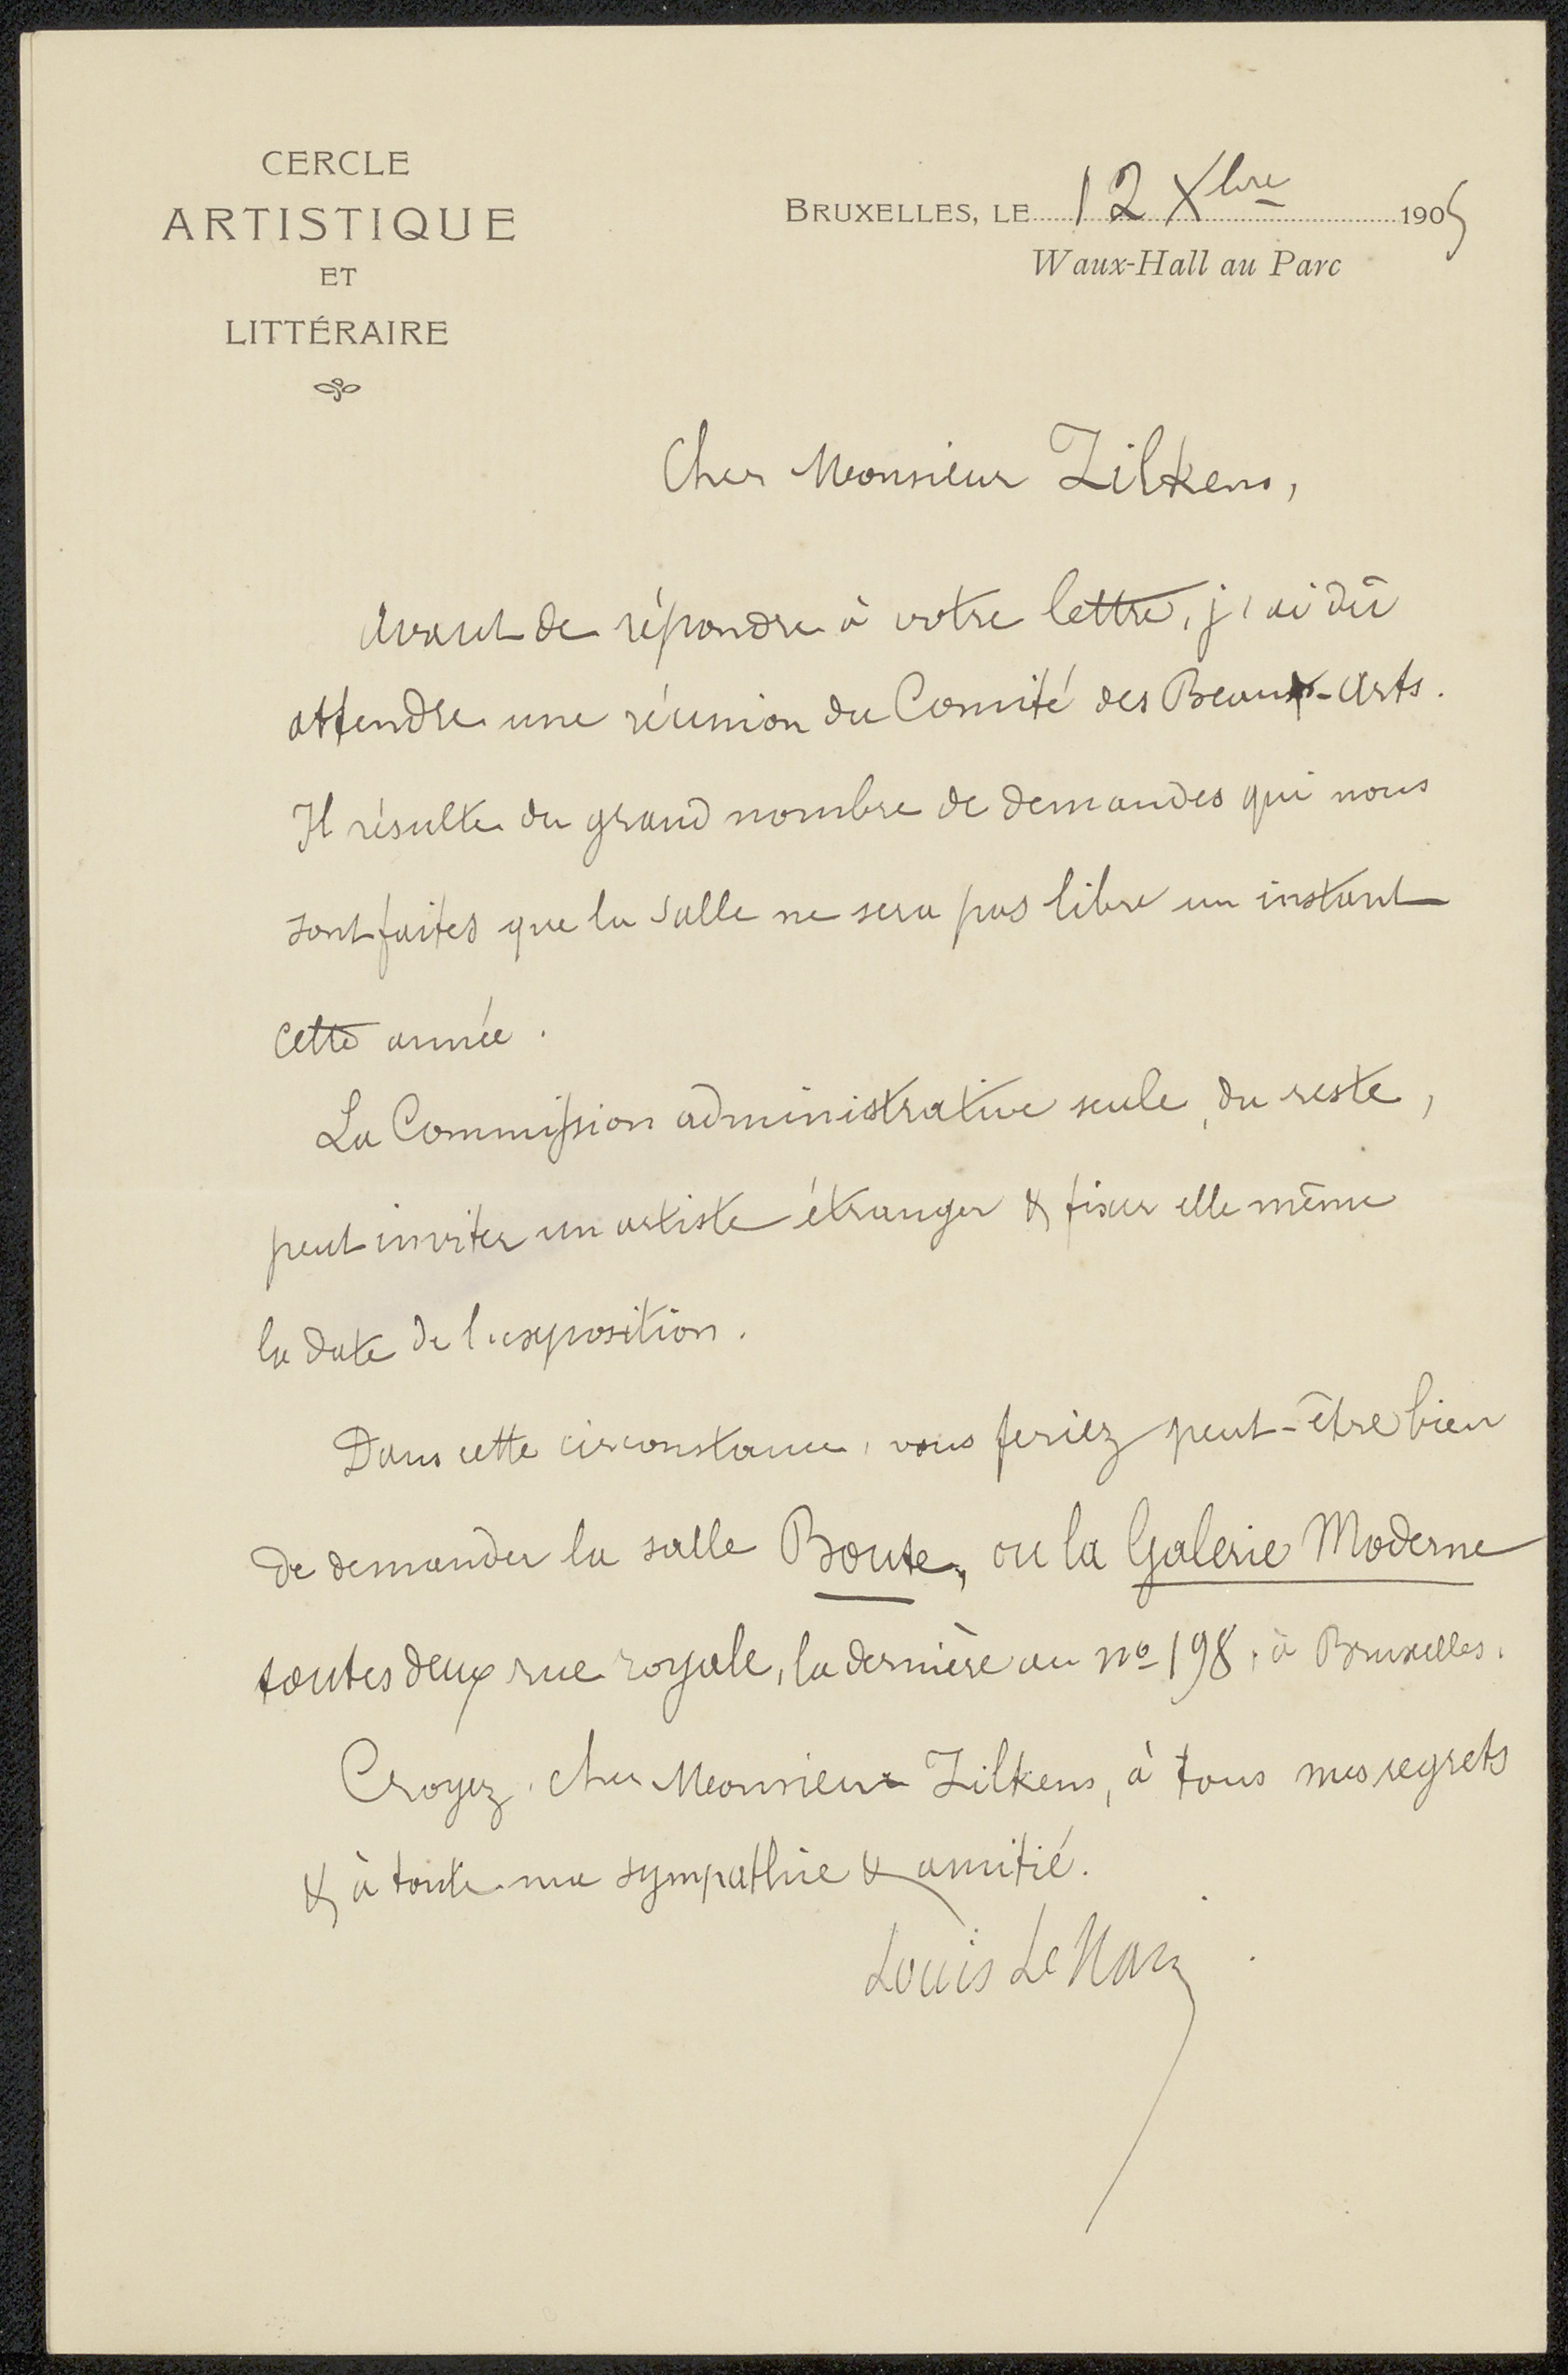 CERCLE
ARTISTIQUE
ET
LITTÉRAIRE
BRUXELLES, LE 12 Xbre 1905
Waux-Hall au Parc
Cher Monsieur Zilkens,
Avant de répondre à votre lettre, j'ai dû
attendre une réunion du Comité des Beaux-Arts.
Il résulte du grand nombre de demandes qui nous
sont faites que la salle ne sera pas libre un instant
cette année.
La Commission administrative seule, du reste,
peut inviter un artiste étranger & fixer elle même
la date de l'exposition.
Dans cette circonstance, vous feriez peut-être bien
de demander la salle Boute, ou la Galerie Moderne
toutes deux rue royale, la dernière au no 198, à Bruxelles.
Croyez, cher Monsieur Zilkens, à tous mes regrets
& à toute ma sympathie & amitié.
Louis Le